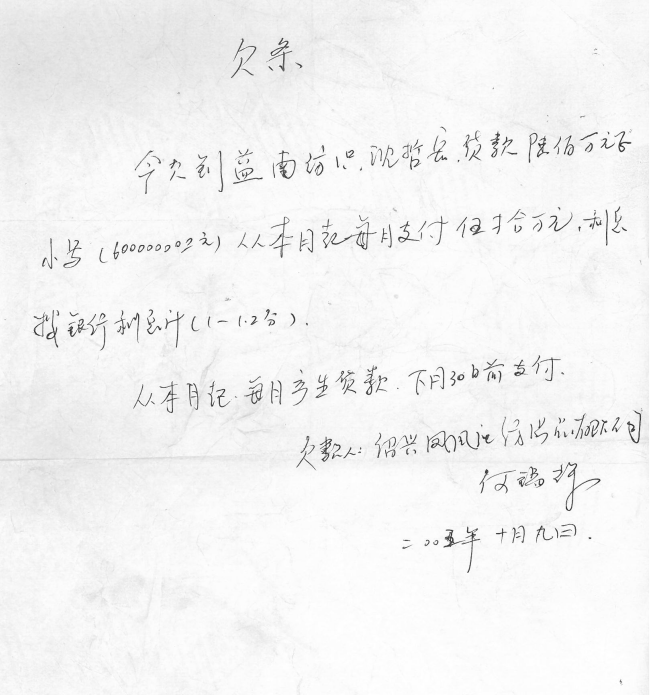 欠条
今欠到益南纺织,沈哲岳,货款陆佰万元正
小写(6000000元)从本月起每月支付伍拾万元,利息
按银行利息计(1-1.2分).
从本月起.每月产生货款.下月30日前支付.
欠款人:绍兴凤凰 纺 有限公司
何
二00五年十月九日.